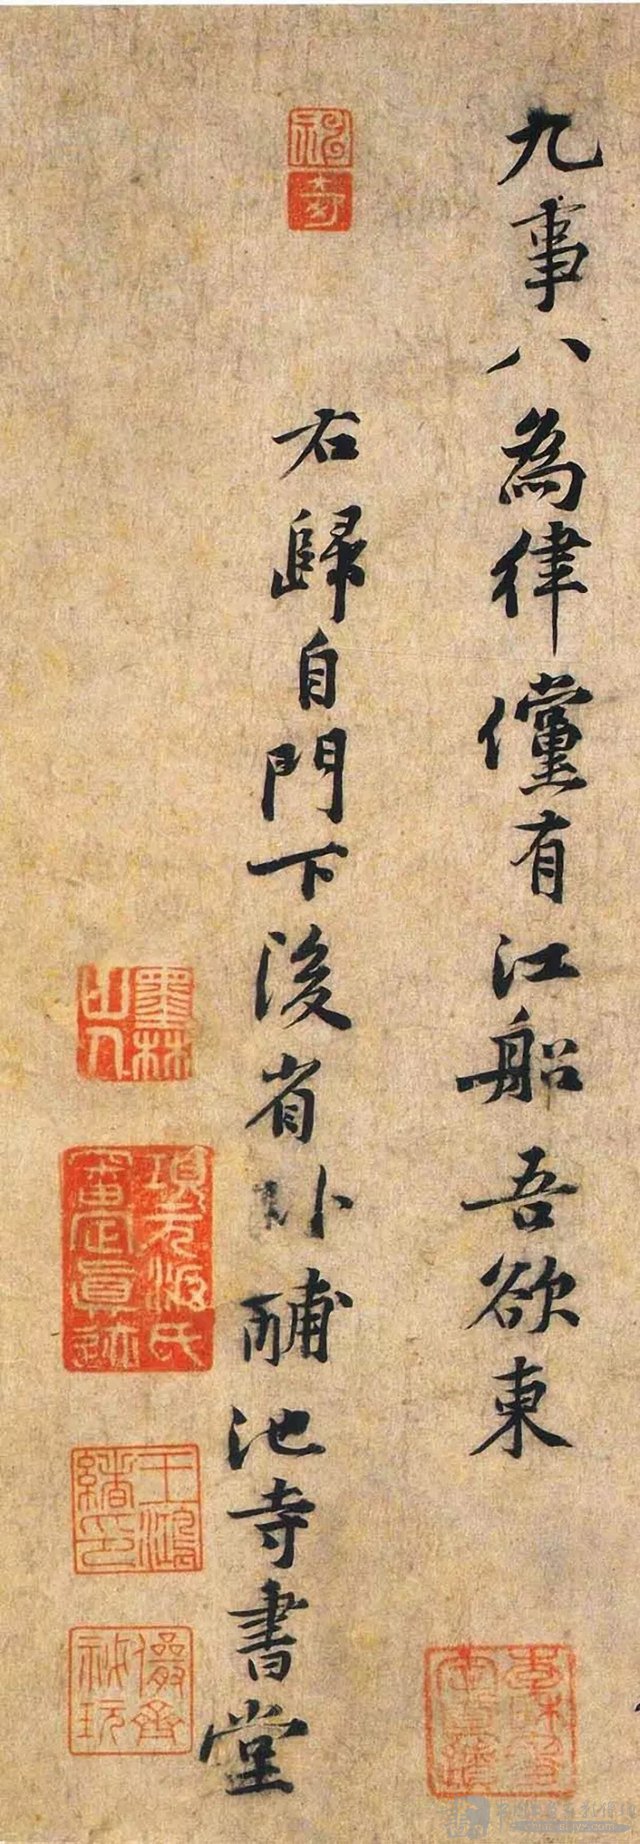 九事八為律儻有江船吾欲東
右歸自門下後省卧酺池寺書堂
神奇
墨林山人
項元汴氏審定真迹
王鴻緒印
儼齋秘玩